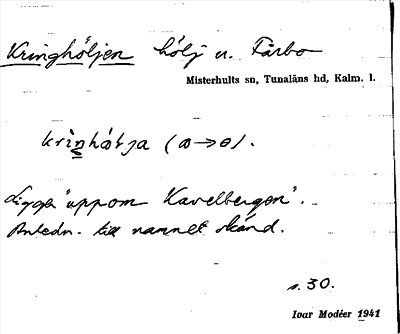 Kringhöljen hölj u. Fårbo
Misterhults sn, Tunaläns hd, Kalm. l.
(a→ə).
Ligger "uppom Kavelbergen".
Anledn. till namnet okänd.
s. 30.
Ivar Modéer 1941